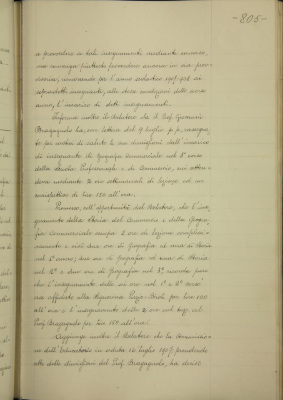 -805-
a provvedere a tali insegnamenti mediante
ma convenga piuttosto provvedere ancora in via prov-
visoria, rinnovando per l'anno scolastico 1907-908 ai
insegnanti, alle stesse condizioni dello scorso
anno, l'incarico di detti insegnamenti.
Informa inoltre il Relatore che il Prof. Giovanni
Bragagnolo ha, con lettera del 9 luglio p. p., rassegna-
to per motivi di salute le sue dimissioni dall'incarico
di insegnante di Geografia Commerciale nel 3° corso
della Scuola Professionale e di Commercio, cui atten-
deva mediante 2 ore settimanali di lezione ed un
di lire 150 all'ora.
sull'opportunità del Relatore, che l'in-
segnamento della Storia del Commercio e della Geogra-
fia Commerciale occupa 8 ore di lezione complessiva-
mente e cioè due ore di Geografia ed una di Storia
nel 1° anno; due ore di Geografia ed una di Storia
nel 2° e due ore di Geografia nel 3°,
che l'insegnamento delle sei ore nel 1° e 2° corso
era affidato alla Signorina per lire 100
all'ora e l'insegnamento delle 2 ore nel terzo al
Prof. Bragagnolo per lire 150 all'ora.
Aggiunge inoltre il Relatore che la Commissio-
ne dell'Educatorio in seduta 12 luglio 1907 prendendo
atto delle dimissioni del Prof. Bragagnolo, ha